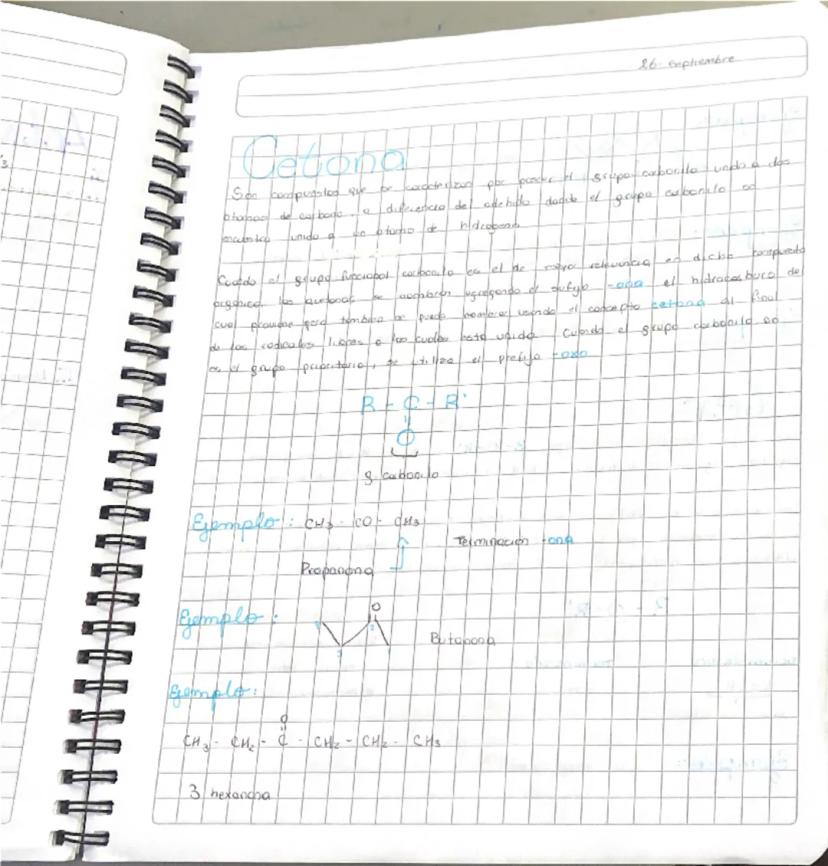 26 septiembre
Cetona
Son compuestos que se caracterizan por poseer el grupo carbonilo unido a dos
átomos de carbono, a diferencia del aldehido donde el grupo carbonilo se
encuentra unido a un átomo de hidrogeno.
Cuando el grupo funcional carbonilo es el de mayor relevancia en dicho compuesto
orgánico, las cetonas se nombran agregando el sufijo -ona el hidrocarburo del
cual provienen también se puede nombrar usando el concepto cetona al final
de los radicales libres a los cuales está unido. Cuando el grupo carbonilo no
es el grupo prioritario, se utiliza el prefijo -oxo
R - C - R'
O
g carbonilo
Ejemplo: CH3 - CO - CH3
Terminación -ona
Propanona
Ejemplo:
O
Butanona
Ejemplo:
O
CH3 - CH2 - C - CH2 - CH2 - CH3
3 hexanona